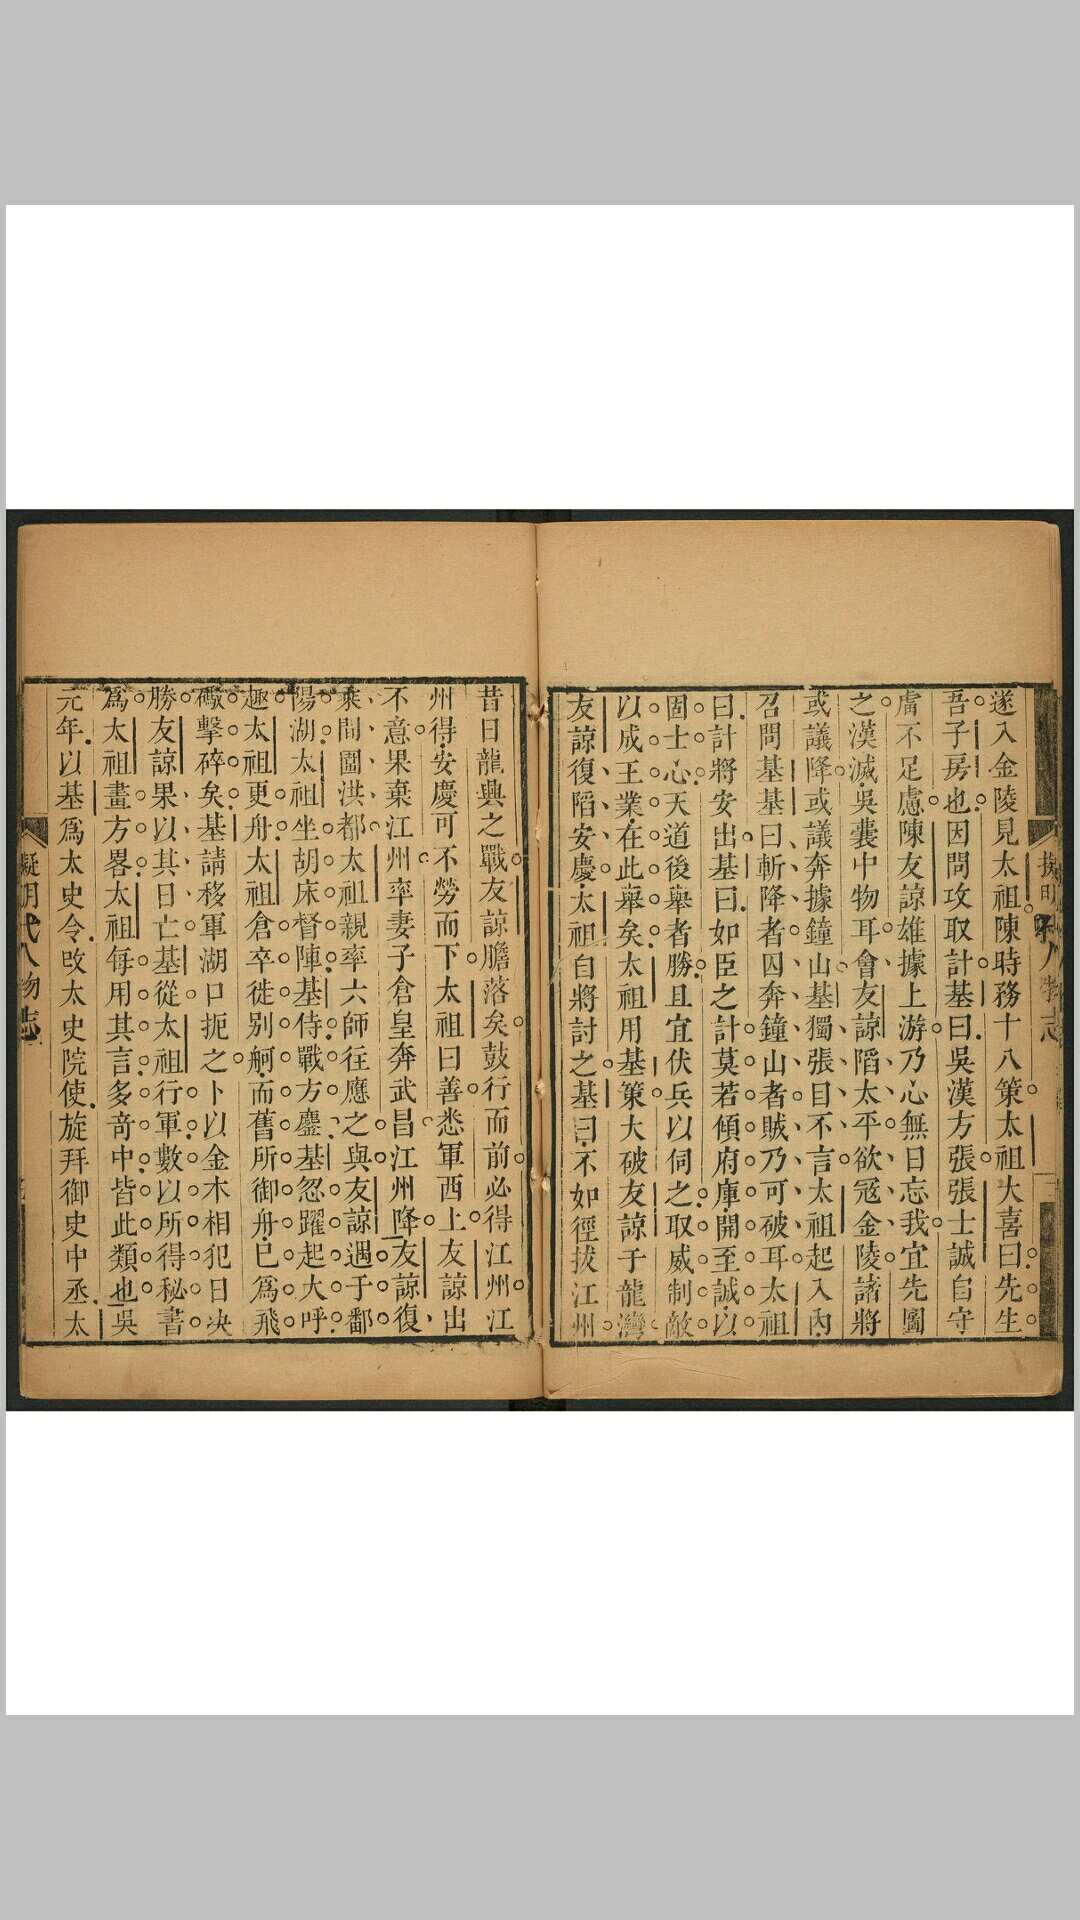 遂入金陵見太祖陳時務十八策太祖大喜曰先生
吾子房也因問攻取計基曰吳漢方張張士誠自守
虜不足慮陳友諒雄據上游乃心無日忘我宜先圖
之漢滅吳囊中物耳會友諒陷太平欲冦金陵諸將
或議降或議奔據鐘山基獨張目不言太祖起入內
召問基基曰斬降者囚奔鐘山者賊乃可破耳太祖
曰計將安出基曰如臣之計莫若傾府庫開至誠以
固士心天道後舉者勝且宜伏兵以伺之取威制敵
以成王業在此舉矣太祖用基策大破友諒于龍灣
友諒復陷安慶太祖自將討之基曰不如徑拔江州
昔日龍興之戰友諒膽落矣鼓行而前必得江州江
州得安慶可不勞而下太祖曰善悉軍西上友諒出
不意果棄江州率妻子倉皇奔武昌江州降友諒復
乘間圖洪都太祖親率六師往應之與友諒遇于鄱
陽湖太祖坐胡床督陣基侍戰方鏖基忽躍起大呼
趣太祖更舟太祖倉卒徙别舸而舊所御舟已爲飛
礮擊碎矣基請移軍湖口扼之卜以金木相犯日决
勝友諒果以其日亡基從太祖行軍數以所得秘書
爲太祖畫方畧太祖每用其言多竒中皆此類也吳
元年以基爲太史令改太史院使旋拜御史中丞太
擬明代人物志